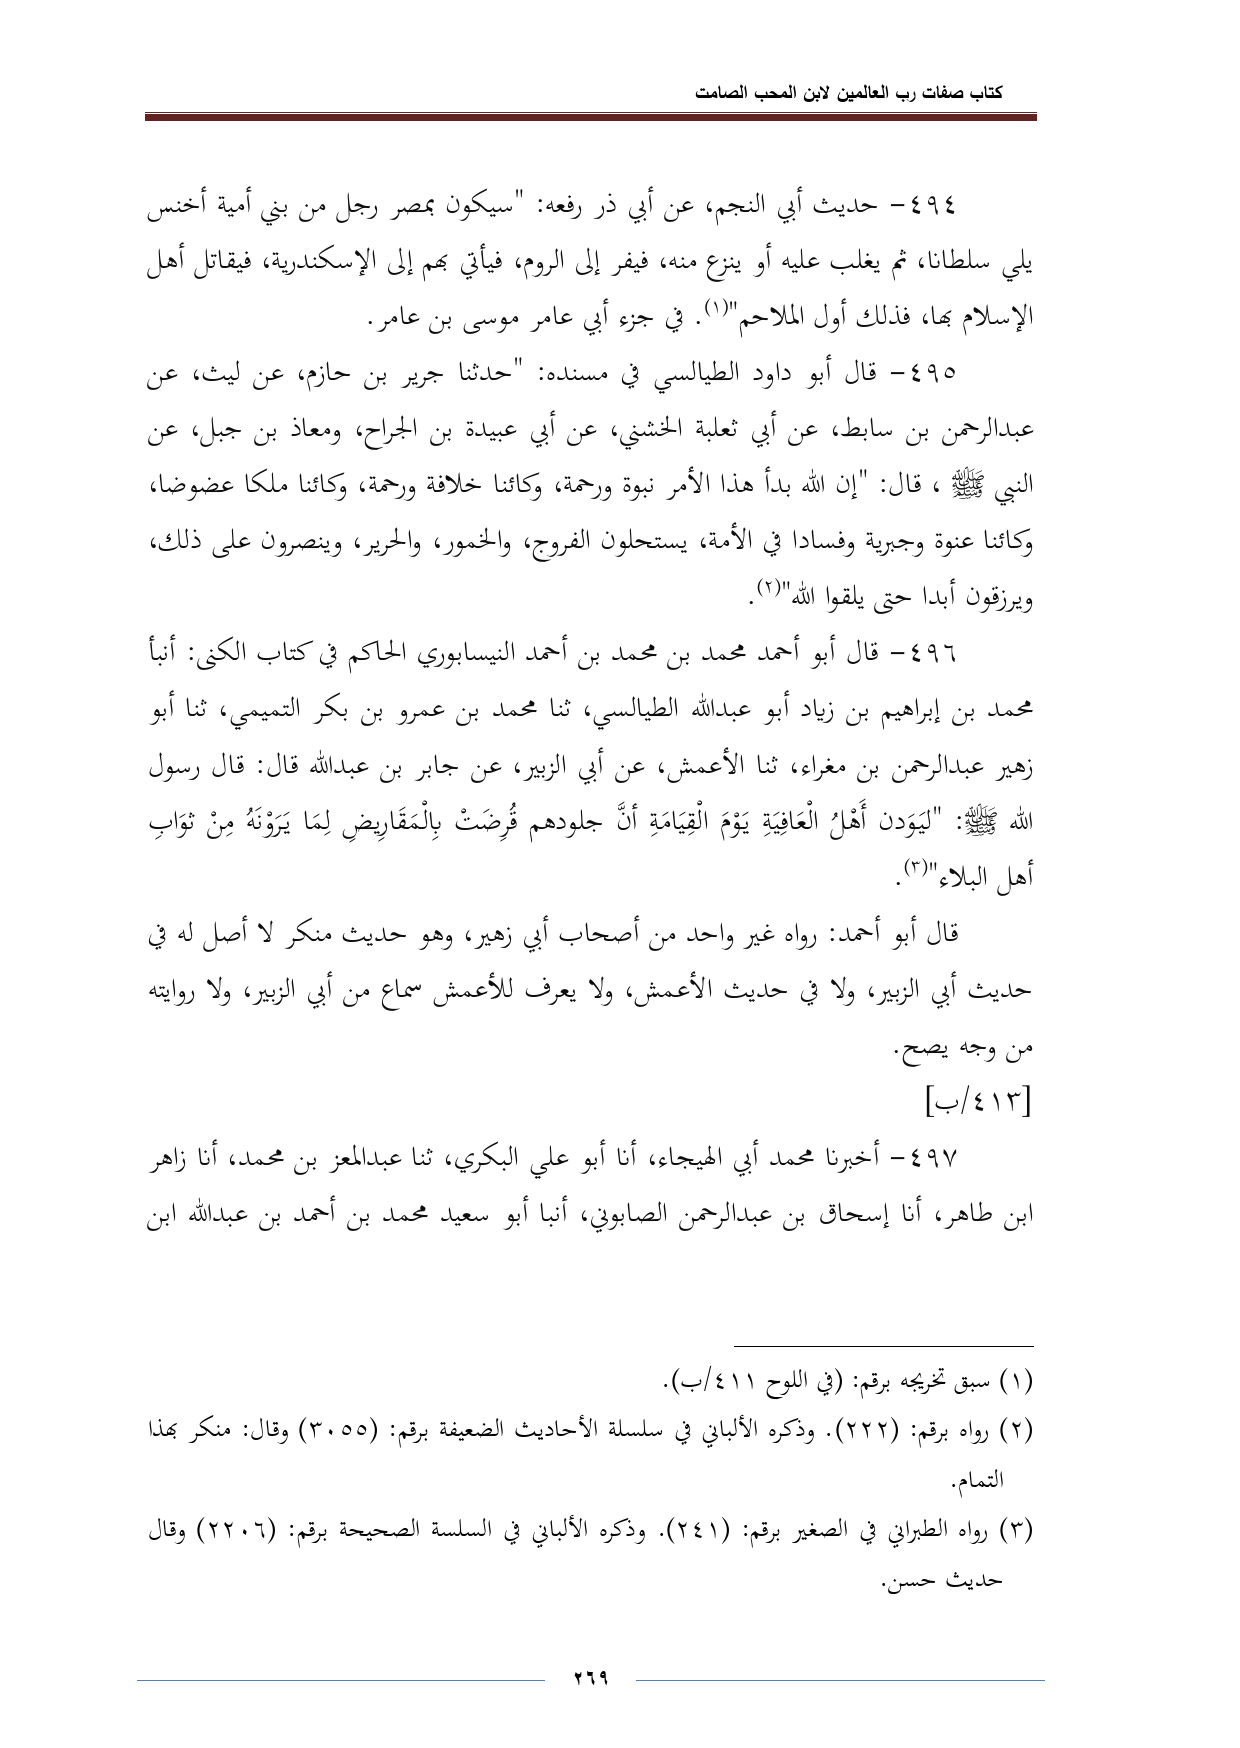 كتاب صفات رب العالمين لابن المحب الصامت
٤٩٤- حديث أبي النجم، عن أبي ذر رفعه: "سيكون بمصر رجل من بني أمية أخنس
يلي سلطانا، ثم يغلب عليه أو ينزع منه، فيفر إلى الروم، فيأتي بهم إلى الإسكندرية، فيقاتل أهل
الإسلام بها، فذلك أول الملاحم"(١). في جزء أبي عامر موسى بن عامر.
٤٩٥- قال أبو داود الطيالسي في مسنده: "حدثنا جرير بن حازم، عن ليث، عن
عبدالرحمن بن سابط، عن أبي ثعلبة الخشني، عن أبي عبيدة بن الجراح، ومعاذ بن جبل، عن
النبي ﷺ ، قال: "إن الله بدأ هذا الأمر نبوة ورحمة، وكائنا خلافة ورحمة، وكائنا ملكا عضوضا،
وكائنا عنوة وجبرية وفسادا في الأمة، يستحلون الفروج، والخمور، والحرير، وينصرون على ذلك،
ويرزقون أبدا حتى يلقوا الله"(٢).
٤٩٦- قال أبو أحمد محمد بن محمد بن أحمد النيسابوري الحاكم في كتاب الكنى: أنبأ
محمد بن إبراهيم بن زياد أبو عبدالله الطيالسي، ثنا محمد بن عمرو بن بكر التميمي، ثنا أبو
زهير عبدالرحمن بن مغراء، ثنا الأعمش، عن أبي الزبير، عن جابر بن عبدالله قال: قال رسول
الله ﷺ: "ليَوَدن أَهْلُ الْعَافِيَةِ يَوْمَ الْقِيَامَةِ أنَّ جلودهم قُرِضَتْ بِالْمَقَارِيضِ لِمَا يَرَوْنَهُ مِنْ ثوَابِ
أهل البلاء"(٣).
قال أبو أحمد: رواه غير واحد من أصحاب أبي زهير، وهو حديث منكر لا أصل له في
حديث أبي الزبير، ولا في حديث الأعمش، ولا يعرف للأعمش سماع من أبي الزبير، ولا روايته
من وجه يصح.
[٤١٣/ب]
٤٩٧- أخبرنا محمد أبي الهيجاء، أنا أبو علي البكري، ثنا عبدالمعز بن محمد، أنا زاهر
ابن طاهر، أنا إسحاق بن عبدالرحمن الصابوني، أنبا أبو سعيد محمد بن أحمد بن عبدالله ابن
(١) سبق تخريجه برقم: (في اللوح ٤١١/ب).
(٢) رواه برقم: (٢٢٢). وذكره الألباني في سلسلة الأحاديث الضعيفة برقم: (٣٠٥٥) وقال: منكر بهذا
التمام.
(٣) رواه الطبراني في الصغير برقم: (٢٤١). وذكره الألباني في السلسة الصحيحة برقم: (٢٢٠٦) وقال
حديث حسن.
٢٦٩